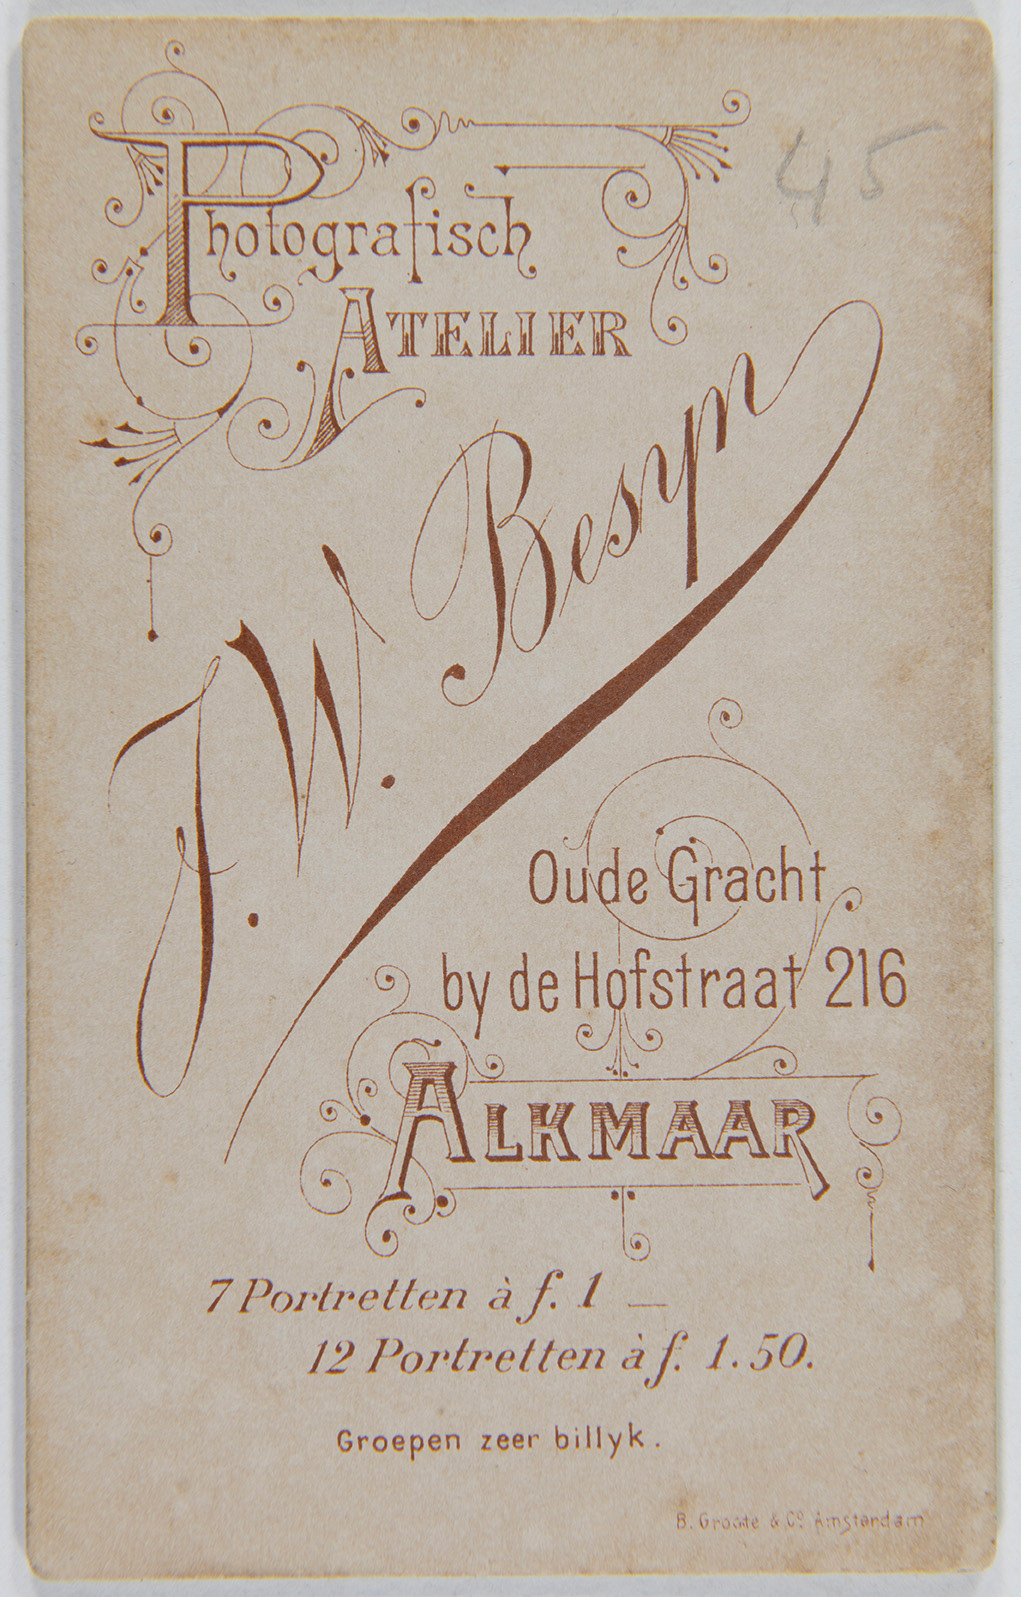 45
Photografisch
ATELIER
J. W. Besyn
Oude Gracht
by de Hofstraat 216
ALKMAAR
7 Portretten à f. 1 —
12 Portretten à f. 1.50.
Groepen zeer billyk.
B. Groote & Co. Amsterdam